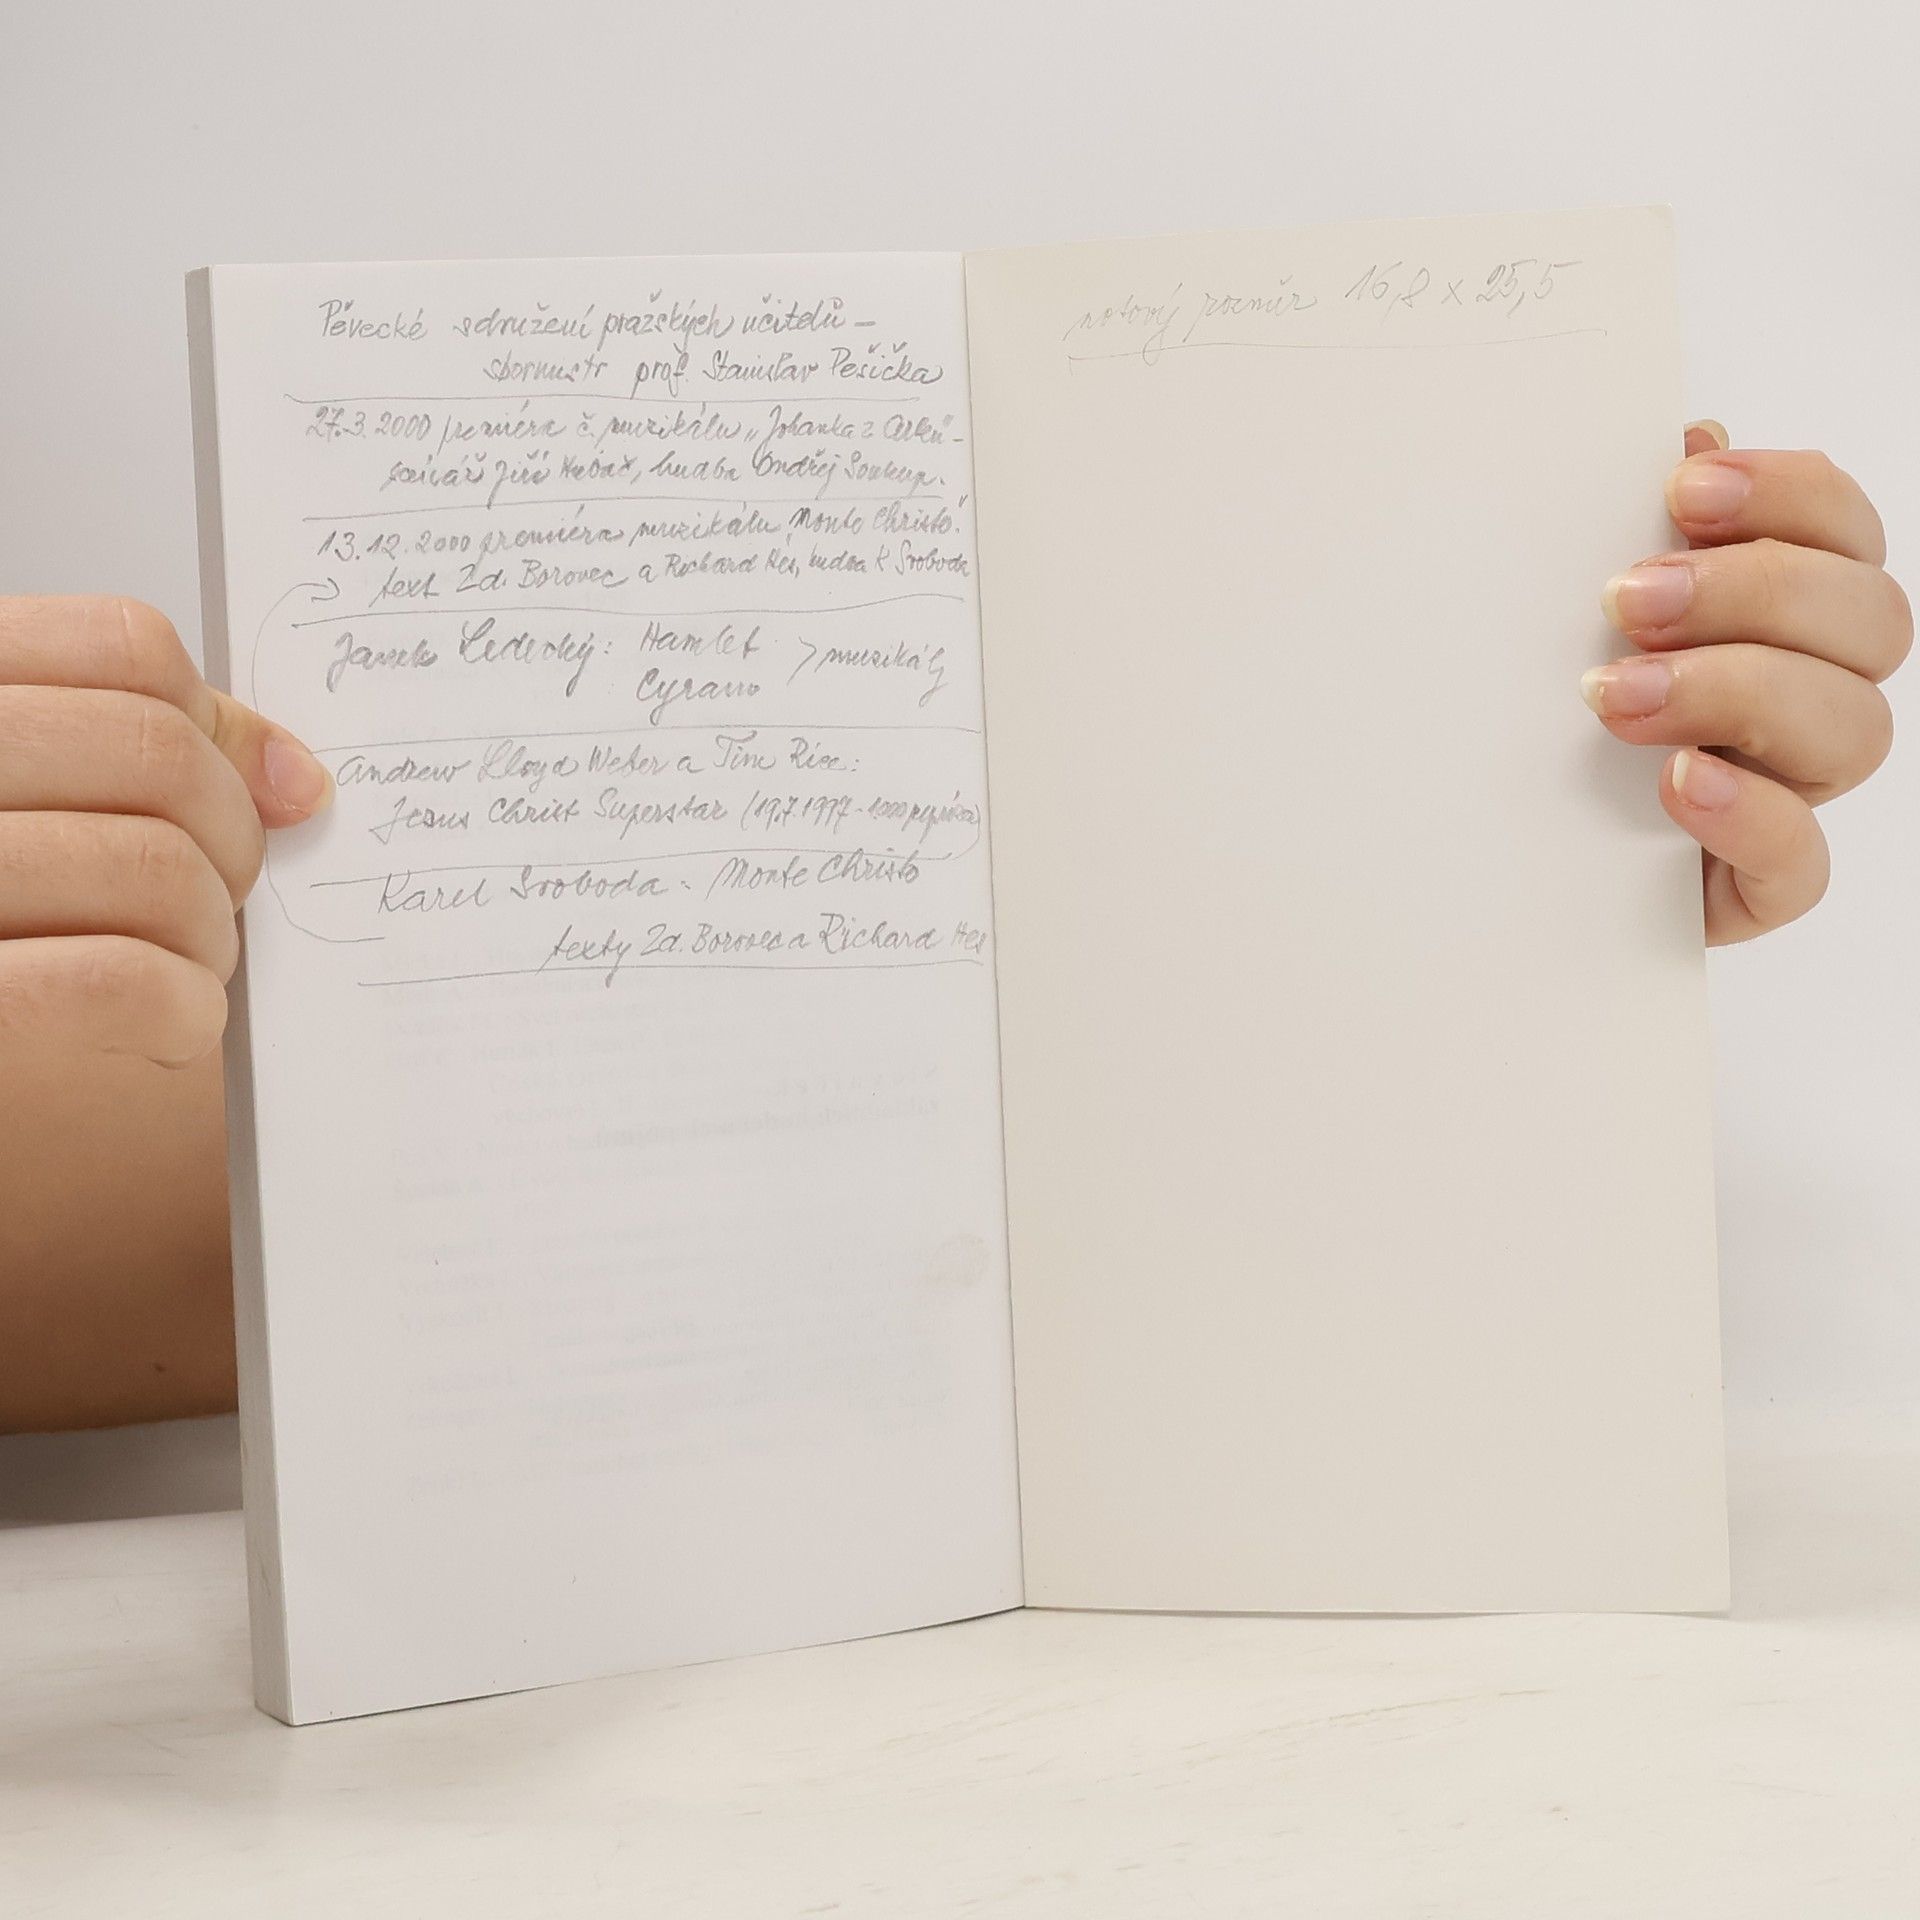 Pěvecké sdružení pražských učitelů –
sbormistr prof. Stanislav Pešička
27.3.2000 premiéra č. muzikálu „Johanka z Arku" –
scénář Jiří Hubač, hudba Ondřej Soukup.
13.12.2000 premiéra muzikálu „Monte Christo."
text Zd. Borovec a Richard Hes, hudba K Svoboda
Janek Ledecký: Hamlet
Cyrano > muzikály
Andrew Lloyd Weber a Tim Rice:
Jesus Christ Superstar (19.7.1997 - 1000
Karel Svoboda: Monte Christo
texty Zd. Borovec a Richard Hes
notový rozměr 16,8 x 25,5